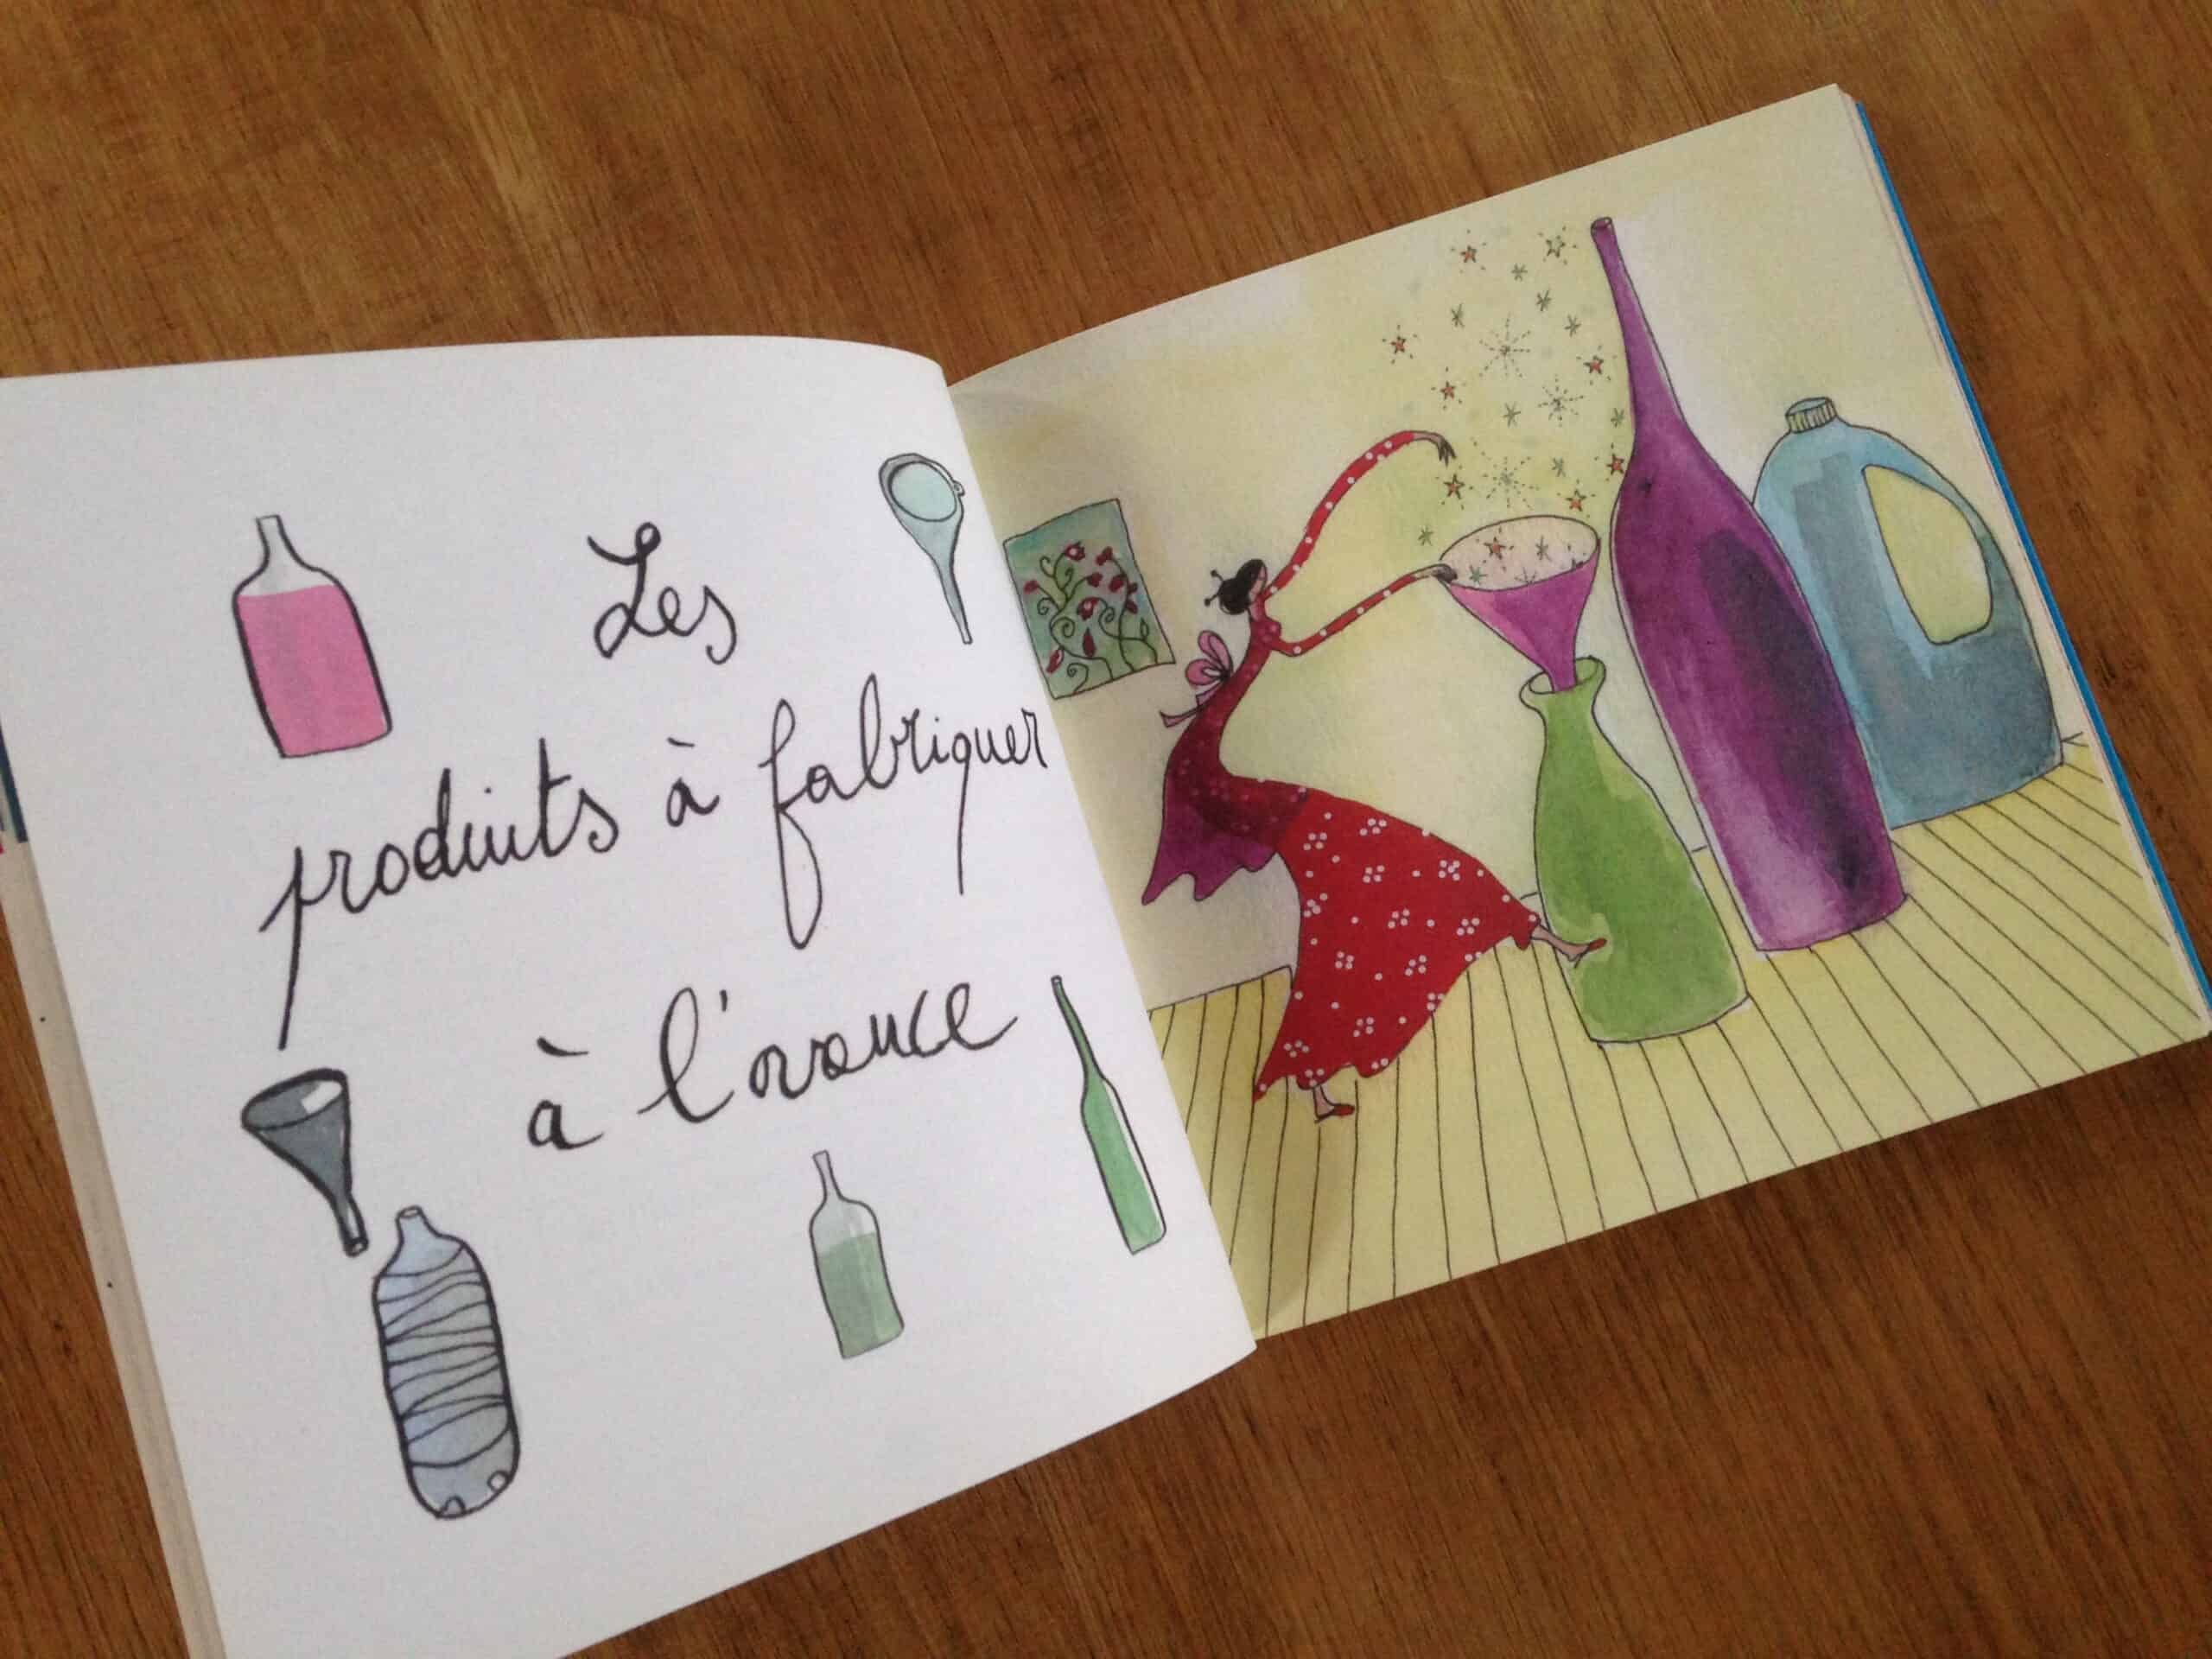 Les
produits à fabriquer
à l'avance